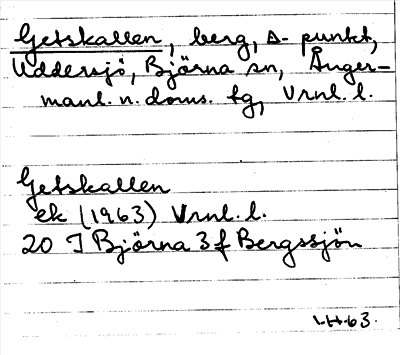 Getskallen, berg, Δ-punkt,
Uddersjö, Björna sn, Ånger-
manl. n. doms. tg, Vrnl. l.
Getskallen
ek (1963) Vrnl. l.
20 J Björna 3 f Bergssjön